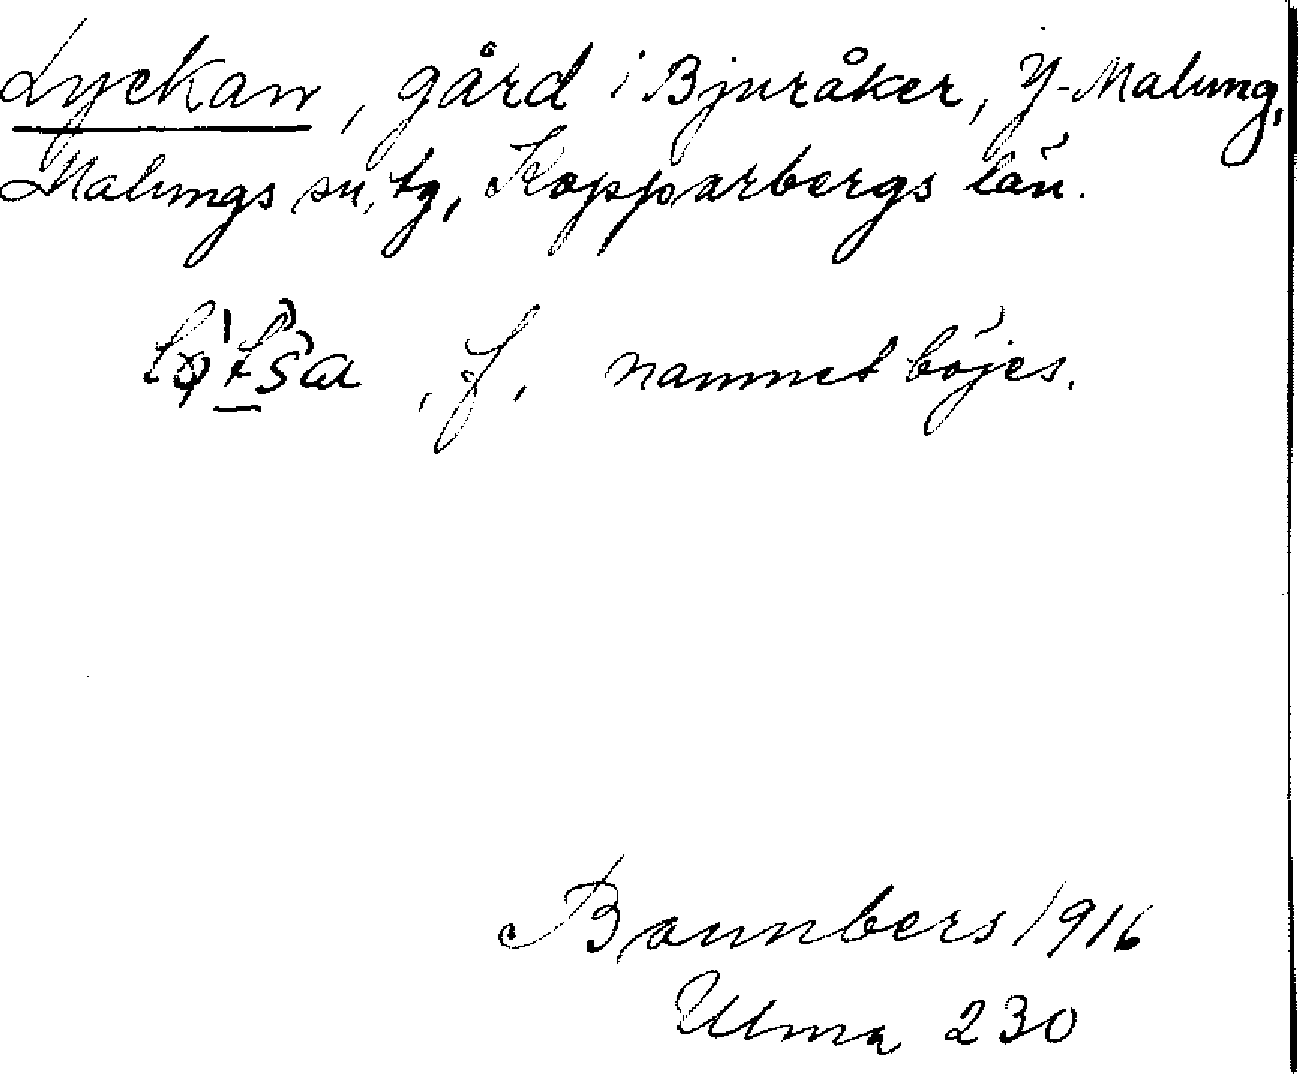 Lyckan, gård i Bjuråker, Y-Malung,
Malungs sn, tg, Kopparbergs län.
f, namnet böjes.
Bannbers 1916
Ulma 230